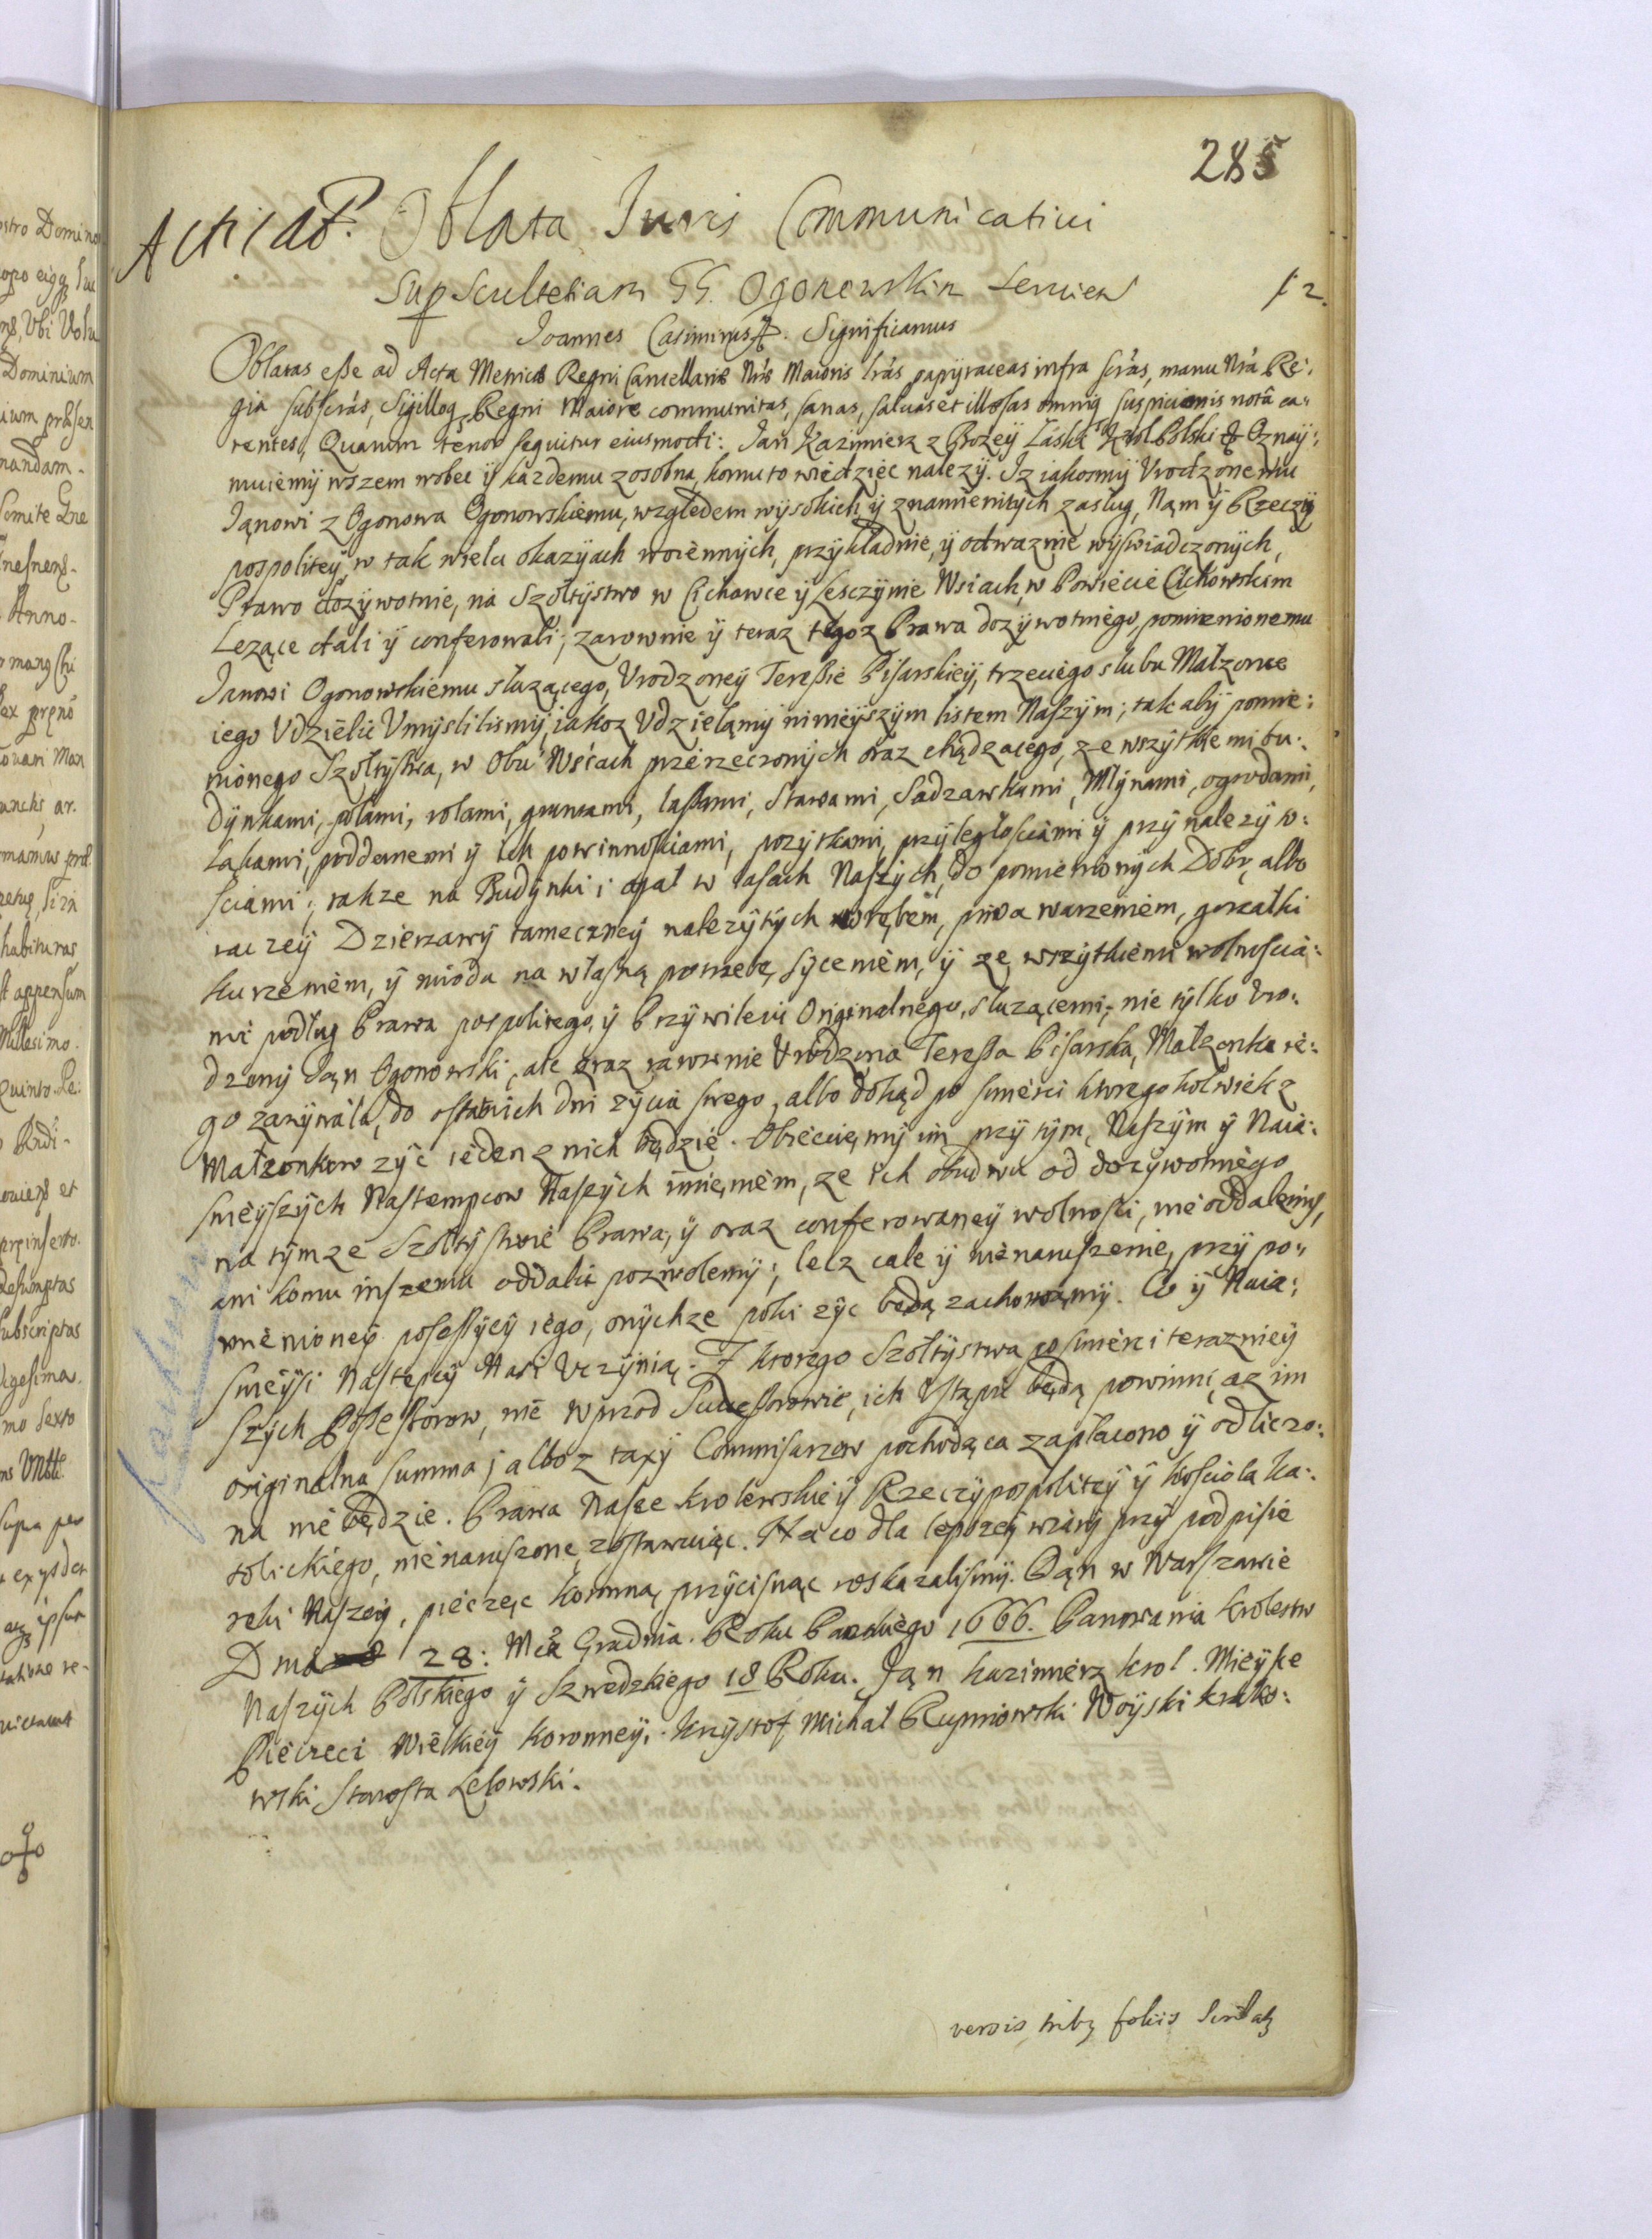 285
Acticat. Oblata Iuris Communicativi
Sup Scultetiam GG. Ogonowskim servien
Ioannes Casimirus. Significamus
Oblatas eße ad Acta Metrices Regni Cancellariæ Nræ Maioris lrás papyraceas infra scrás, manu Nrá Re:
gia subscrás, Sigilloq Regni Maiore communitas, sanas, salvas et illæsas omniq suspicionis notâ ca:
rentes, Quarum tenor sequitur eiusmodi: Jan Kazimierz z Bożey Łaski Krol Polski & Oznay:
muiemy wszem wobec y każdemu zosobna, komu to wiedziec nalezy. Iz iakosmy Vrodzonemu
Janowi z Ogonowa Ogonowskiemu, względem wysokich y znamienitych zasług, Nam y Rzeczy
pospolitey w tak wielu okazyach woiennych, przykładnie, y odwaznie wyswiadczonych,
Prawo dozywotnie, na Szołtystwo w Cichawce y Lesczynie Wsiach, w Powiecie Cichowskim
Lezące dali y conferowali; zarownie y teraz tegoz Prawa dozywotniego, pomienionemu
Janowi Ogonowskiemu służącego, Vrodzoney Tereßie Pisarskiey, trzeciego slubu Małzonce
iego Vdzielic Vmyslilismy, iakoz Vdzielamy ninieyszym listem Naszym; tak aby pomie:
nionego Szołtystwa, w Obu Wsiach przerzeczonych oraz chądzącego, ze wszytkiemi bu:
dynkami, polami, rolami, gruntami, laßami, Stawami, Sadzawkami, Młynami, ogrodami,
Łąkami, poddanemi y ich powinnosciami, pozytkami, przyległosciami y przynalezyto:
sciami; takze na Budynki i opał w lasach Naszych, do pomienionych Dobr, albo
raczey Dzierzawy tameczney nalezytych wrębem, piwa warzeniem, gorzałki
kurzeniem, y miodu na własną potrzebę syceniem, y ze wszytkiemi wolnoscia:
mi podług Prawa pospolitego, y Przywileiu Originalnego, sluzącemi, nie tylko Vro:
dzony Jan Ogonowski, ale oraz zarownie Vrodzona Tereßa Pisarska, Małzonka ie:
go zazywała, do ostatnich dni zycia swego, albo dokąd po smierci ktoregokolwiek z
Małzonkow zyc ieden z nich będzie. Obiecuiemy im przy tym, Naszym y Naia:
snieyszych Nastempcow Naszych imieniem, ze ich obudwu od dozywotniego
na tymze Szołtystwie Prawa, y oraz conferowaney wolnosci, nie oddalemy,
ani komu inszemu oddalic pozwolemy; lecz cale y nienaruszenie, przy po:
mienioney poseßyey iego, onychze poki zyc będą zachowamy. Co y Naia:
snieysi Nastepcy Nasi Vczynią. Z ktorego Szołtystwa po smierci teraznieyszych
szych Poßeßorow, nie wprzod Succeßorowie, ich Vstąpic będą powinni, az im
originalna summa, albo z taxy Commisarzow pochodząca zapłacono y odliczo:
na nie będzie. Prawa Nasze krolewskiey Rzeczypospolitey y kosciola ka:
tolickiego, nienaruszone, zostawuiąc. Na co dla lepszey wiary przy podpisie
ręki Naszey, pieczęc koronną przycisnąc roskazalismy. Dan w Warszawie
Dnia 28: Mcá Grudnia. Roku Panskiego 1666. Panowania krolestw
Naszych Polskiego y Szwedzkiego 18 Roku. Jan kazimierz krol. Mieysce
Pieczeci Wielkiey koronney. Krzysztof Michał Rupniowski Woyski krako:
wski Starosta Lelowski.
versis tribq foliis